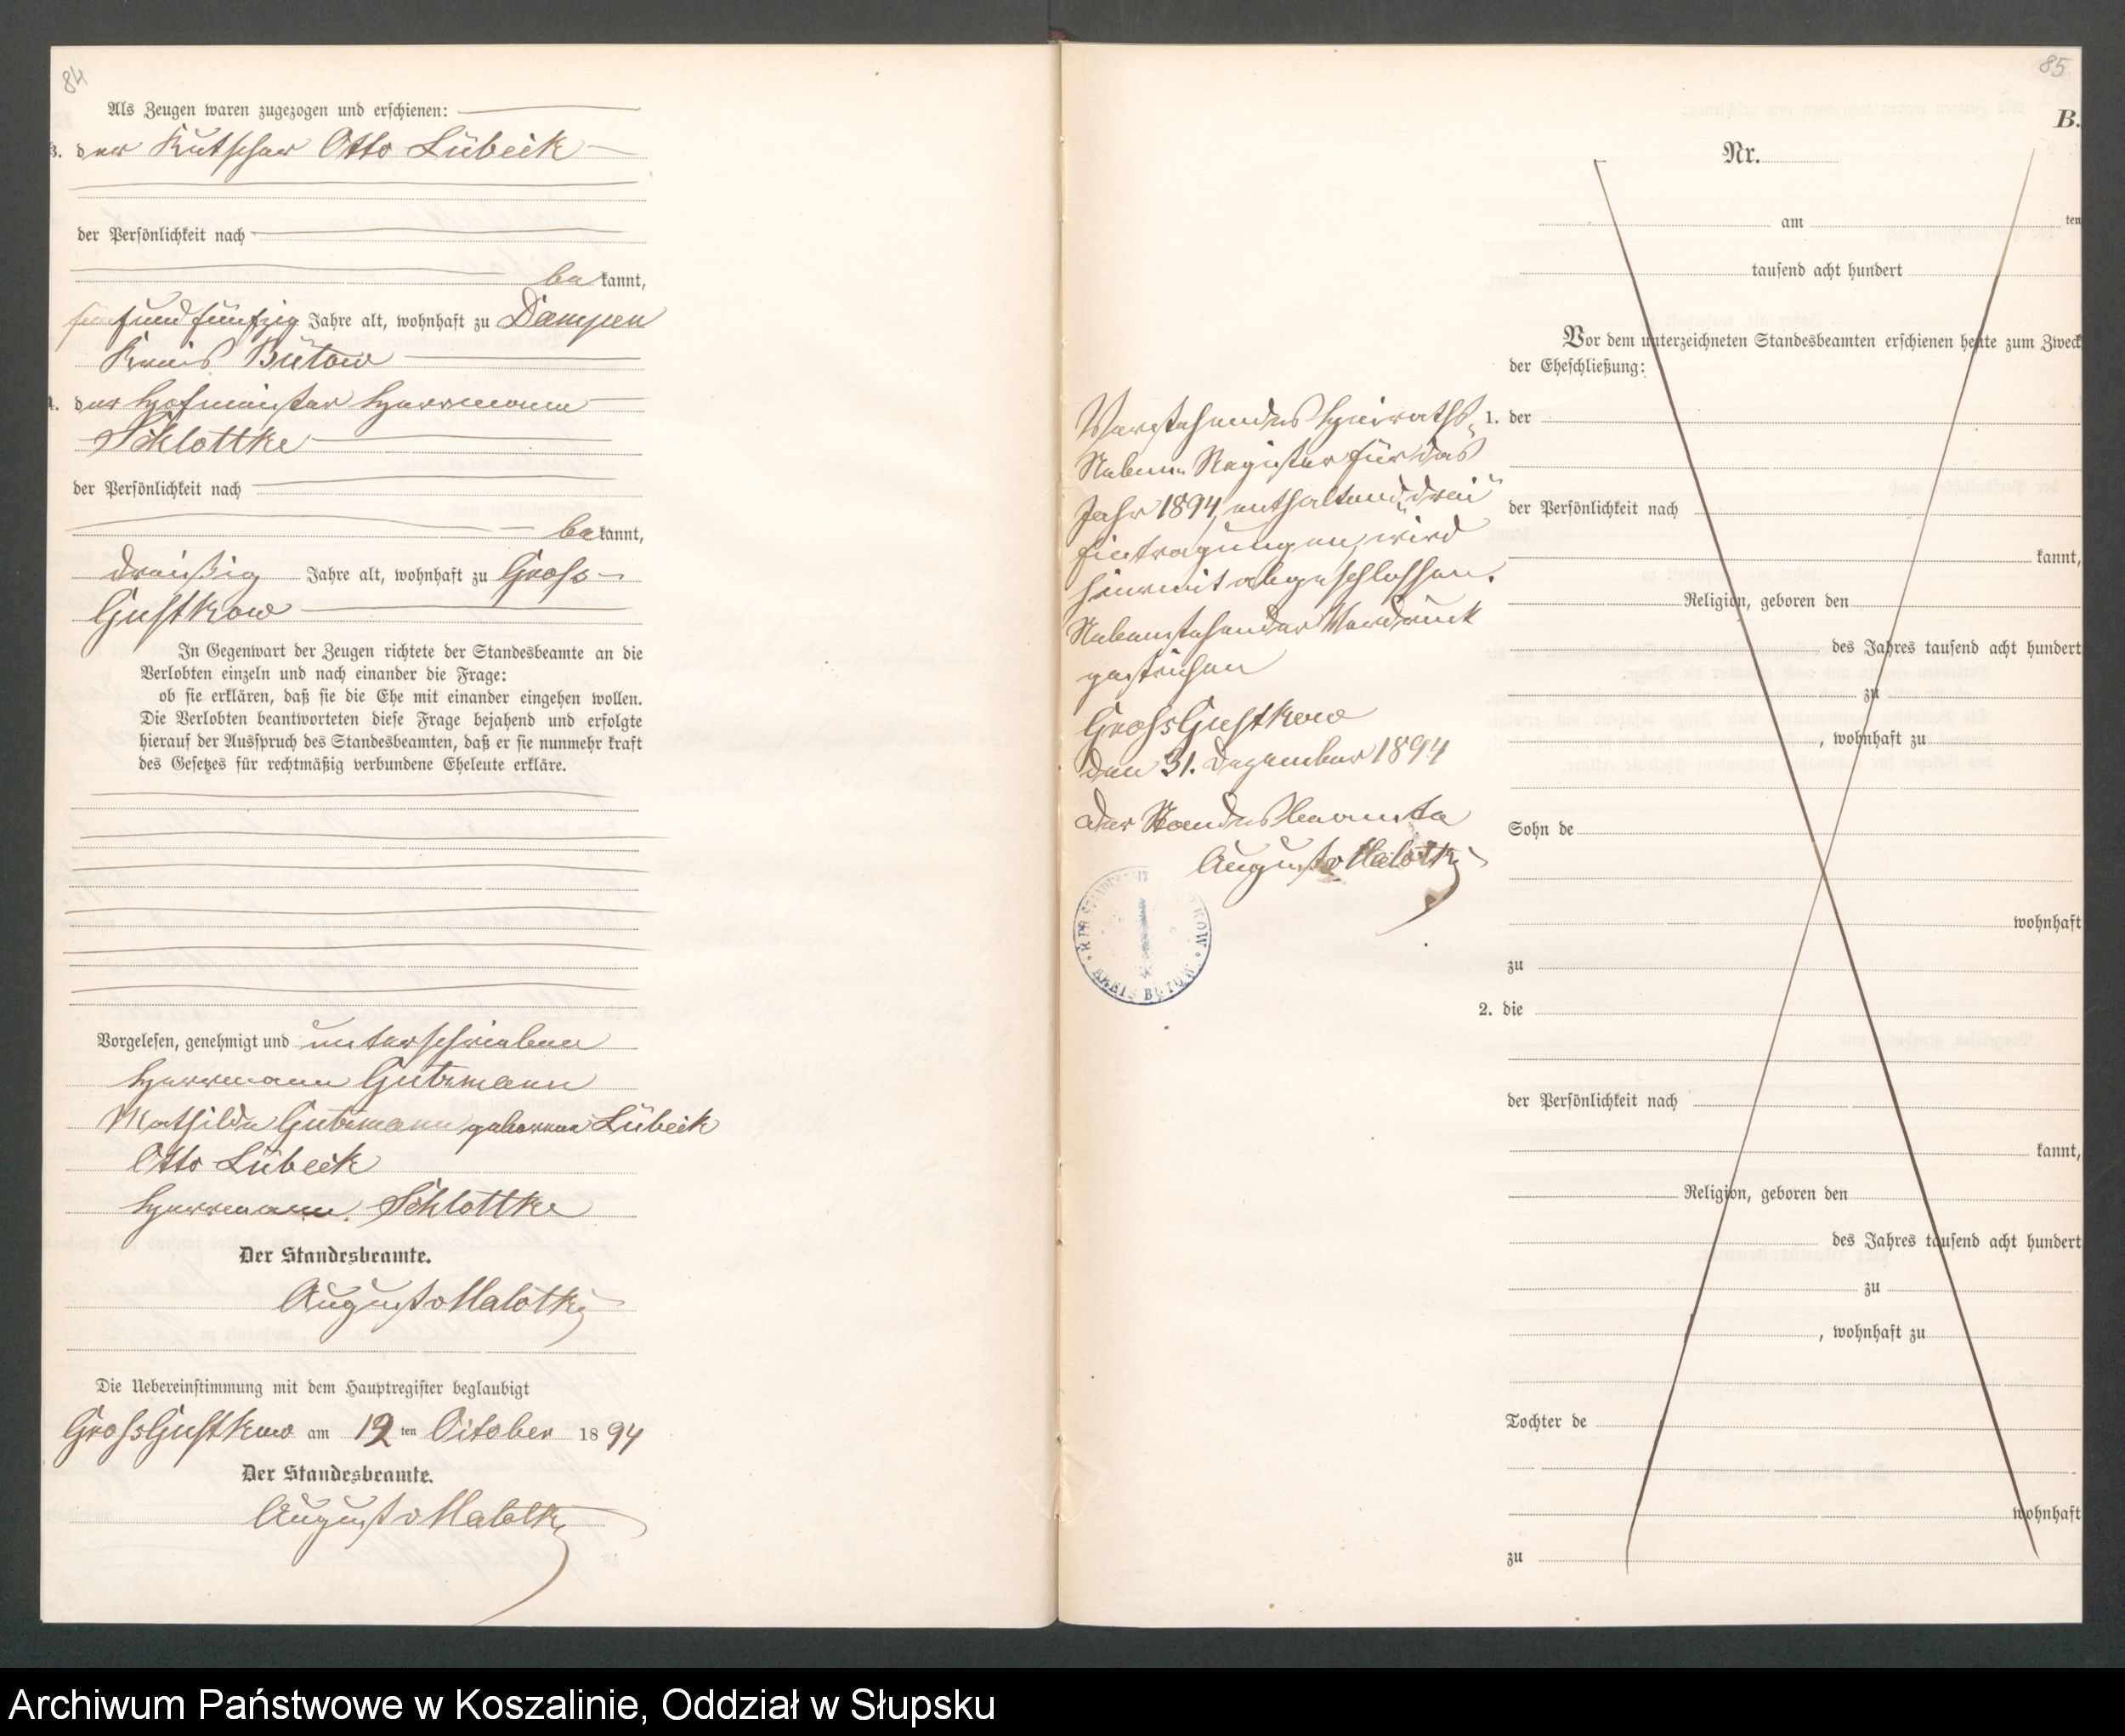 84
Als Zeugen waren zugezogen und erschienen:
3. der Kutscher Otto Lübeck
der Persönlichkeit nach
be kannt,
fünfundfünfzig Jahre alt, wohnhaft zu Dampen
Kreis Bütow
4. der Hofmeister Herrmann
Schlottke
der Persönlichkeit nach
be kannt,
dreißig Jahre alt, wohnhaft zu Gross-
Gustkow
In Gegenwart der Zeugen richtete der Standesbeamte an die
Verlobten einzeln und nach einander die Frage:
ob sie erklären, daß sie die Ehe mit einander eingehen wollen.
Die Verlobten beantworteten diese Frage bejahend und erfolgte
hierauf der Ausspruch des Standesbeamten, daß er sie nunmehr kraft
des Gesetzes für rechtmäßig verbundene Eheleute erkläre.
Vorgelesen, genehmigt und unterschrieben
Herrmann Gutzmann
Mathilde Gutzmann geborene Lübeck
Otto Lübeck
Herrmann Schlottke
Der Standesbeamte.
August v Malottki
Die Uebereinstimmung mit dem Hauptregister beglaubigt
Gross Gustkow am 12 ten October 18 94
Der Standesbeamte.
August v Malottki
85
B.
Nr.
am ten
tausend acht hundert
Vor dem unterzeichneten Standesbeamten erschienen heute zum Zweck
der Eheschließung:
1. der
der Persönlichkeit nach
kannt,
Religion, geboren den
des Jahres tausend acht hundert
zu
, wohnhaft zu
Sohn de
wohnhaft
zu
2. die
der Persönlichkeit nach
kannt,
Religion, geboren den
des Jahres tausend acht hundert
zu
, wohnhaft zu
Tochter de
wohnhaft
zu
Vorstehendes Heiraths-
Neben-Register für das
Jahr 1894, enthaltend drei
Eintragungen, wird
hiermit abgeschlossen.
Nebenstehender Vordruck
gestrichen
Gross Gustkow
den 31. Dezember 1894
Der Standesbeamte
August v Malottki
KREIS BÜTOW
Archiwum Państwowe w Koszalinie, Oddział w Słupsku